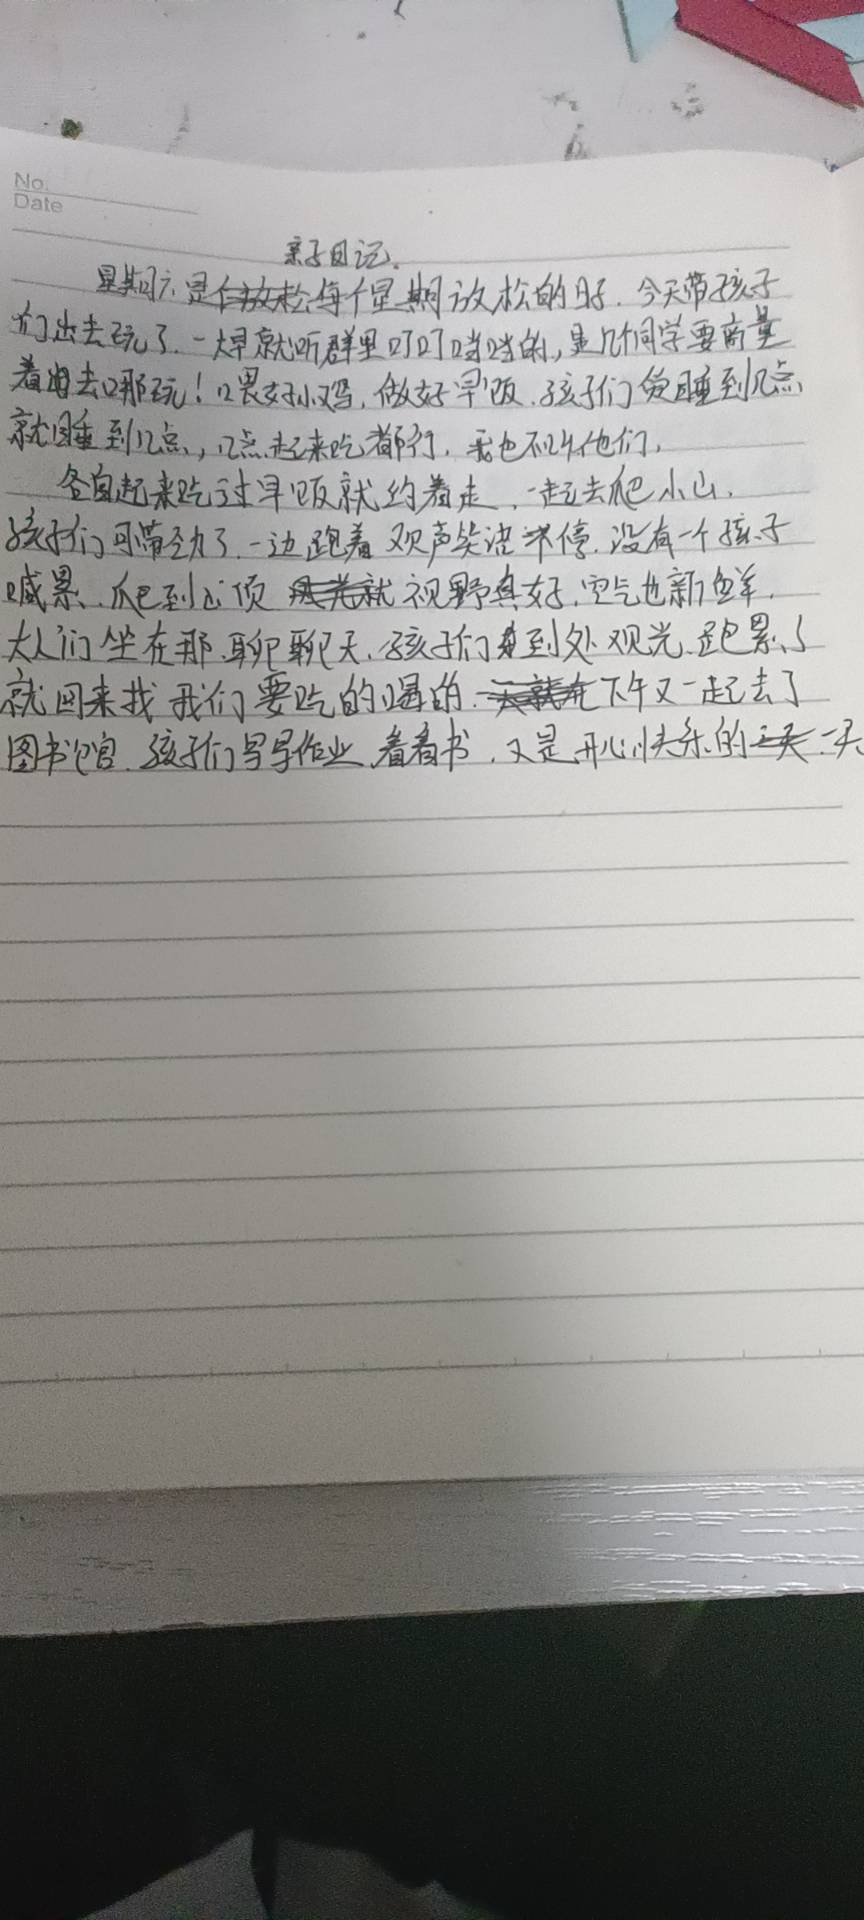 No.
Date
亲子日记.
星期六是每个星期放松的日子.今天带孩子
们出去玩了.一大早就听群里叮叮当当的,是几个同学要商量
着去哪玩!喂好小鸡,做好早饭.孩子们睡到几点
就睡到几点,几点起来吃都行,我也不叫他们,
各自起来吃过早饭就约着走,一起去爬小山,
孩子们可带劲了.一边跑着 观声笑语不停.没有一个孩子
喊累、爬到山顶 视野真好,空气也新鲜,
大人们坐在那聊聊天,孩子们到处观光.跑累了
就回来找我们要吃的喝的.下午又一起去了
图书馆.孩子们写写作业,看看书,又是开心快乐的一天